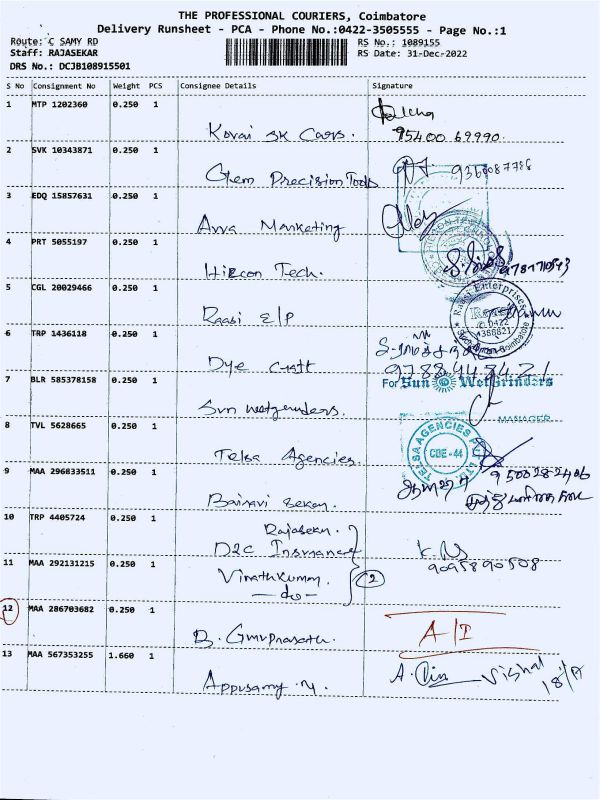 THE PROFESSIONAL COURIERS, Coimbatore
Delivery Runsheet - PCA - Phone No.:0422-3505555 - Page No.:1
Route: C SAMY RD
Staff: RAJASEKAR
DRS No.: DCJB108915501
RS No.: 1089155
RS Date: 31-Dec-2022
S No Consignment No Weight PCS Consignee Details Signature
1 MTP 1202360 0.250 1
Kovai SK Cars. 95400 69990.
2 SVK 10343871 0.250 1
Gem Precision Tools 9360087786
3 EDQ 15857631 0.250 1
Avva Marketing
4 PRT 5055197 0.250 1
Hircon Tech.
5 CGL 20029466 0.250 1
Raasi E/P
Raasi Enterprises
0422
4386821
6 TRP 1436118 0.250 1
Dye Craft
7 BLR 585378158 0.250 1
For Sun WetGrinders
Sun wetgrinders.
MANAGER
8 TVL 5628665 0.250 1
Telsa Agencies.
TELSA AGENCIES PVT LTD
CBE-44
9 MAA 296833511 0.250 1
9500282406
Bairavi Sekar
10 TRP 4405724 0.250 1
Rajasekr.
D2C Insurance
11 MAA 292131215 0.250 1
9095890508
Vinothkumar
-do-
2
12 MAA 286703682 0.250 1
B. Guruprasath. A/I
13 MAA 567353255 1.660 1
Appusamy.N. Vishal